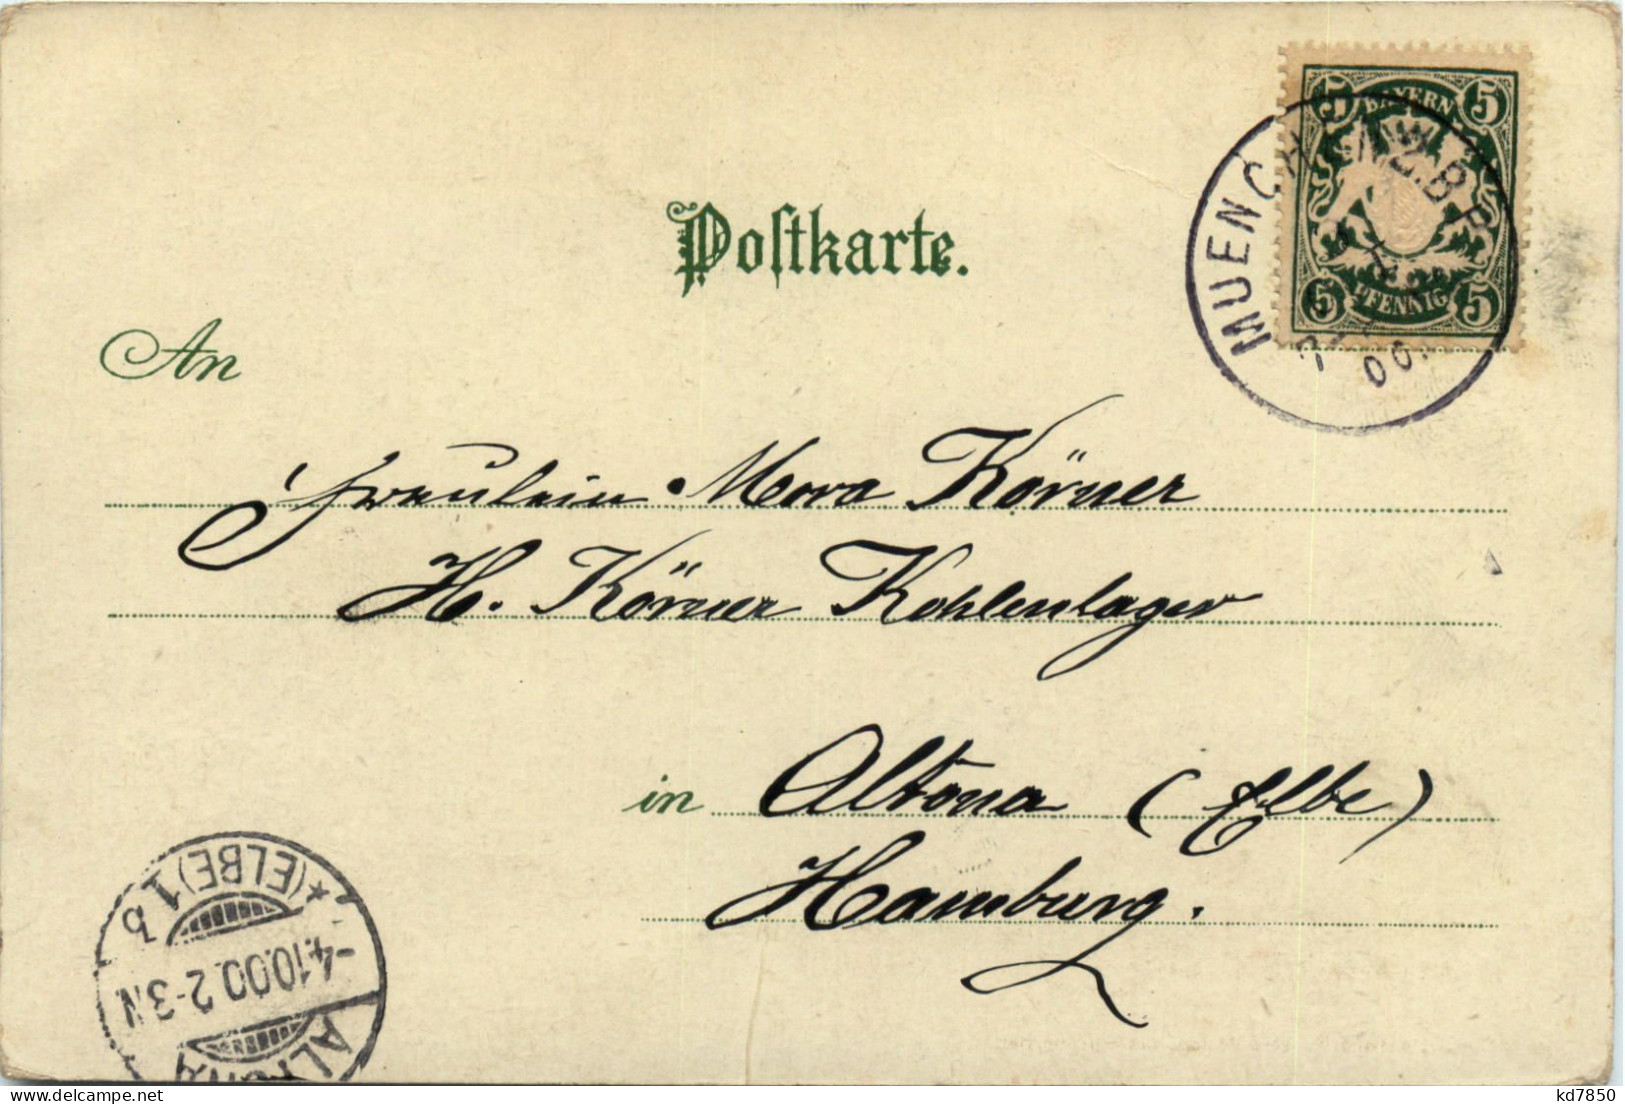 5 BAYERN 5
5 PFENNIG 5
MUENCHEN
00.
Postkarte.
An
Fräulein Mora Körner
H. Körner Kohlenlager
in Altona (Elbe)
Hamburg.
ALTONA
-4.10.00. 2-3N
* (ELBE) 1 b
kd7850